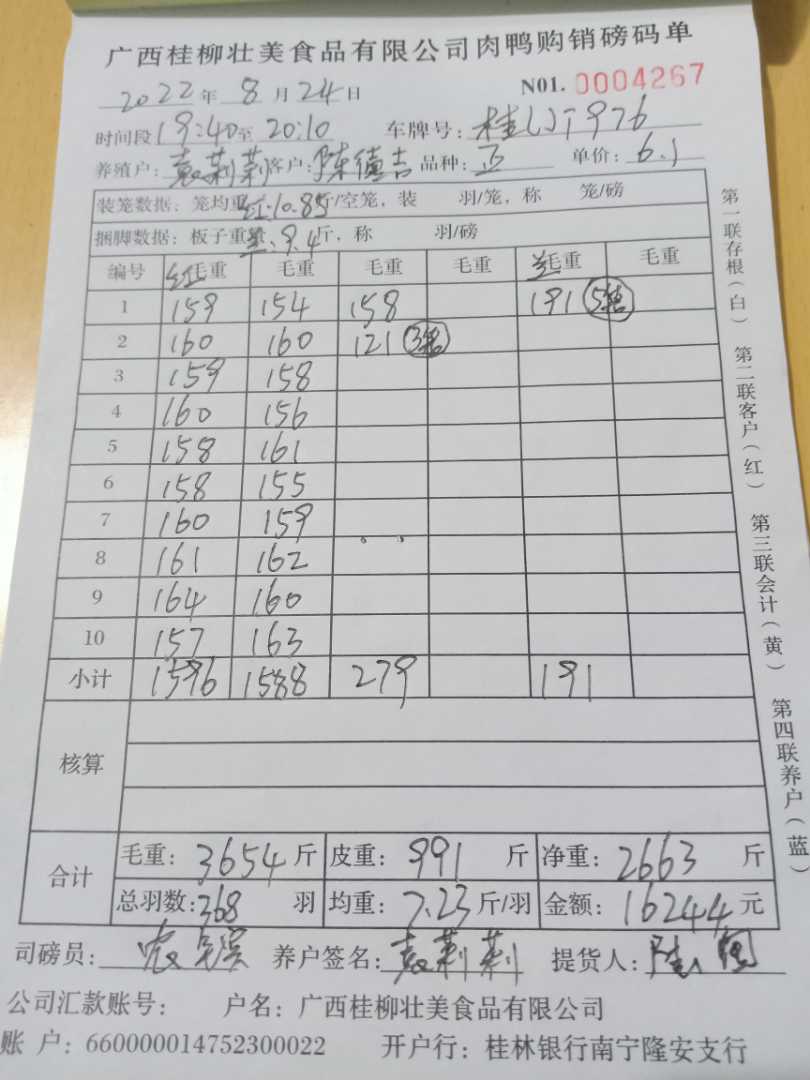 广西桂柳壮美食品有限公司肉鸭购销磅码单
2022年8月24日 N01. 0004267
时间段19:40至20:10 车牌号:桂 976
养殖户:袁莉莉 客户:陈德吉 品种:正 单价:6.1
装笼数据: 笼均重红:10.85斤/空笼, 装 羽/笼, 称 笼/磅
捆脚数据: 板子重量 兰:9.4斤, 称 羽/磅
编号 红毛重 毛重 毛重 毛重 兰毛重 毛重
1 159 154 158 191 5笼
2 160 160 121 3笼
3 159 158
4 160 156
5 158 161
6 158 155
7 160 159
8 161 162
9 164 160
10 157 163
小计 1596 1588 279 191
核算
合计 毛重: 3654斤 皮重: 991斤 净重: 2663斤
总羽数:368羽 均重: 7.23斤/羽 金额: 16244元
司磅员: 农 养户签名: 袁莉莉 提货人: 陆
公司汇款账号: 户名: 广西桂柳壮美食品有限公司
账 户: 660000014752300022 开户行: 桂林银行南宁隆安支行
第一联存根(白) 第二联客户(红) 第三联会计(黄) 第四联养户(蓝)